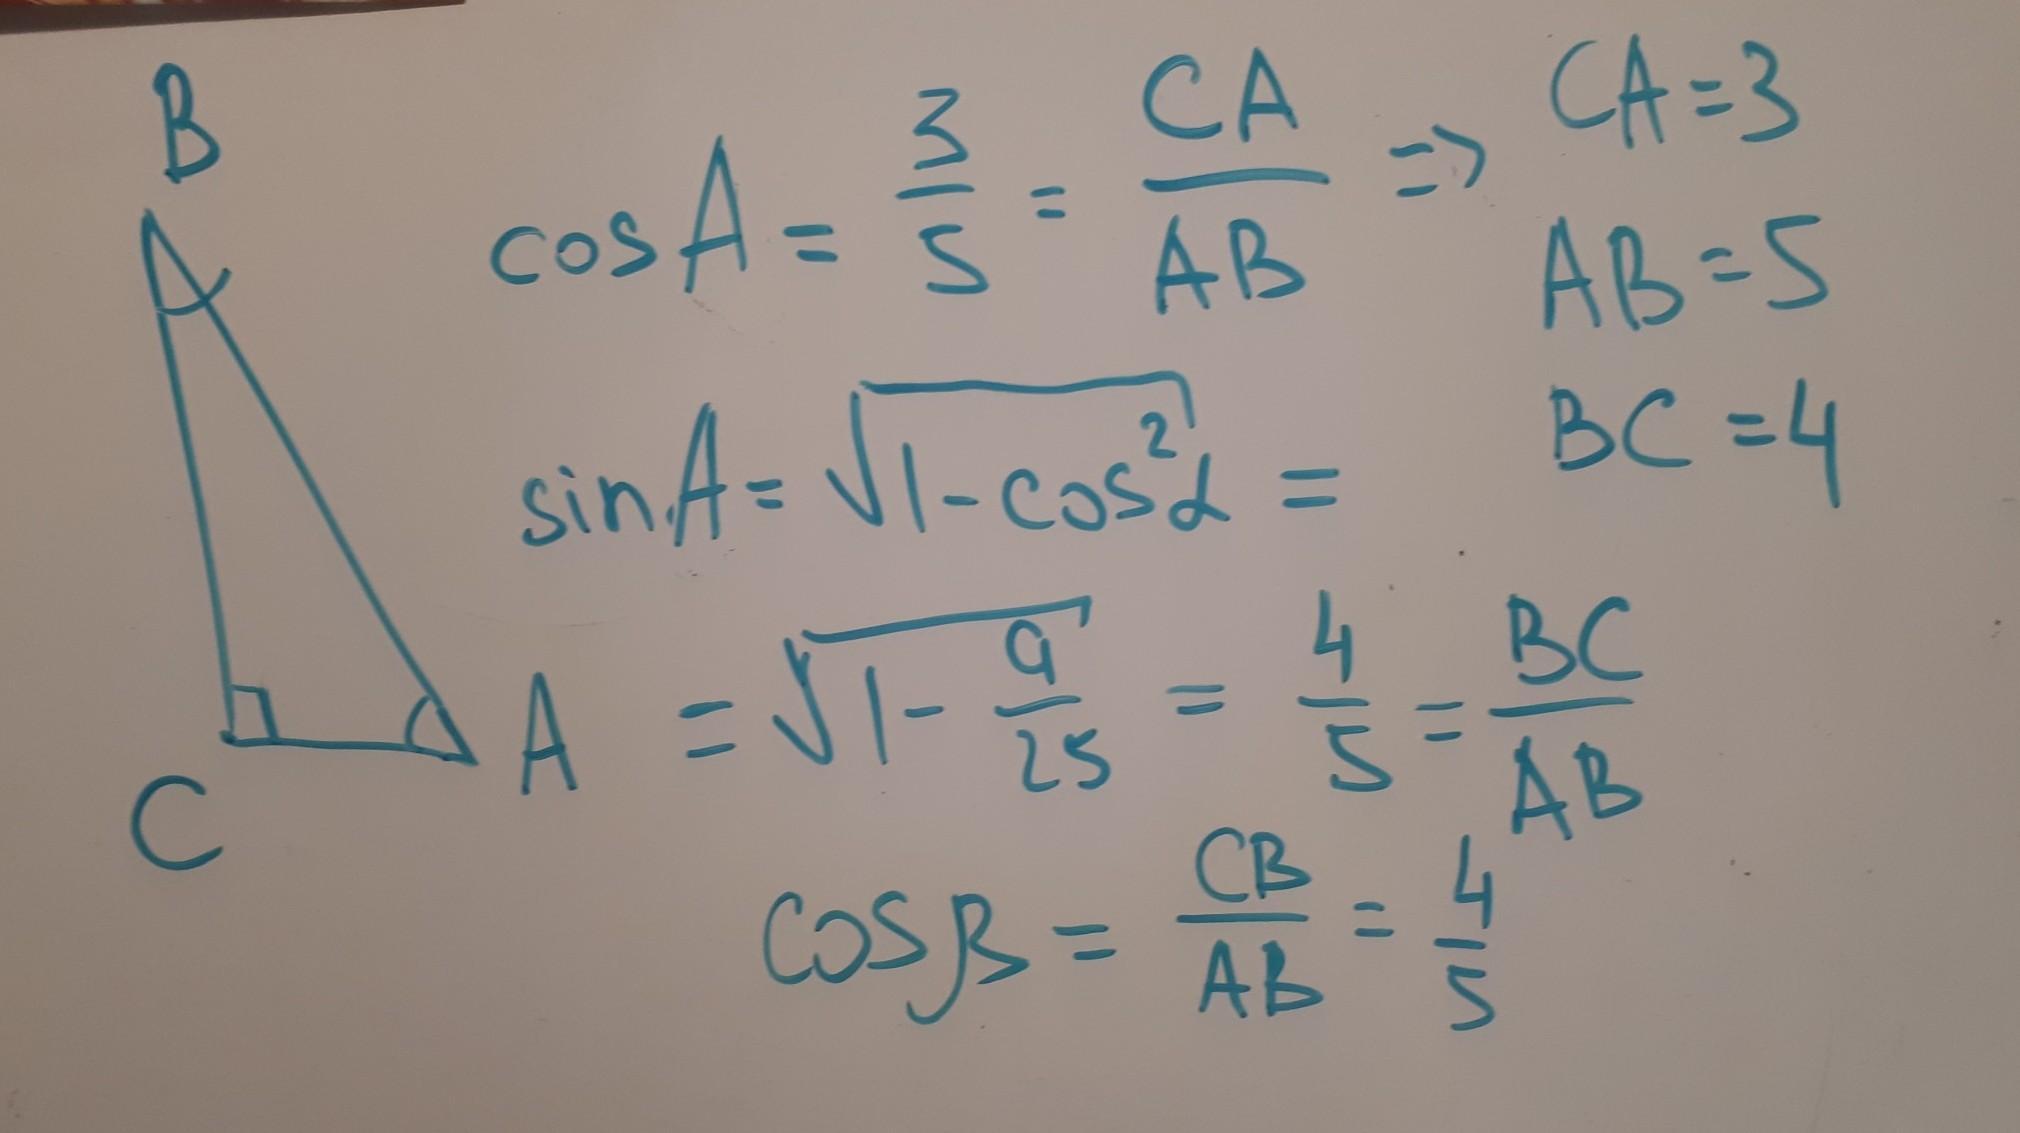 B
C
A
cos A = 3/5 = CA/AB => CA=3
AB=5
BC=4
sin A = √(1-cos²α) =
= √(1-9/25) = 4/5 = BC/AB
cosβ = CB/AB = 4/5